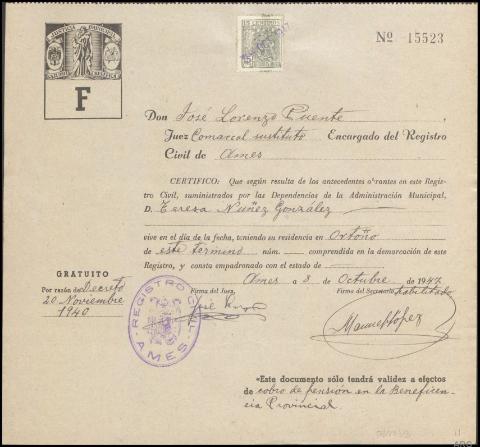 15 CENTIMOS
Nº 15523
F
Don José Lorenzo Puente
Juez Comarcal sustituto Encargado del Registro
Civil de Ames
CERTIFICO: Que según resulta de los antecedentes obrantes en este Regis-
tro Civil, suministrados por las Dependencias de la Administración Municipal,
D. Teresa Nuñez González
vive en el día de la fecha, teniendo su residencia en Ortoño
de este termino núm. comprendida en la demarcación de este
Registro, y consta empadronado con el estado de
Ames a 3 de Octubre de 1947
GRATUITO
Por razón de Decreto
20 Noviembre
1940
Firma del Juez,
Firma del Secretario habilitado
REGISTRO CIVIL
AMES
José
Manuel López
*Este documento sólo tendrá validez a efectos
de cobro de pensión en la Beneficen-
cia Provincial.